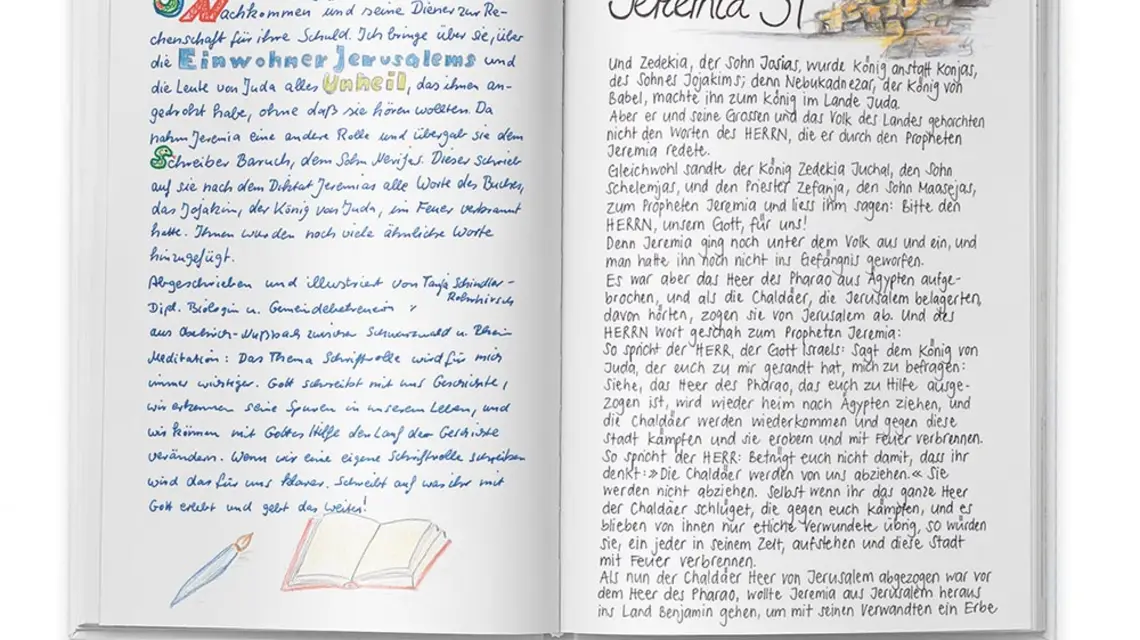 Nachkommen und seine Diener zur Re-
chenschaft für ihre Schuld. Ich bringe über sie, über
die Einwohner Jerusalems und
die Leute von Juda alles Unheil, das ihnen an-
gedroht habe, ohne daß sie hören wollten. Da
nahm Jeremia eine andere Rolle und übergab sie dem
Schreiber Baruch, dem Sohn Nerijas. Dieser schrieb
auf sie nach dem Diktat Jeremias alle Worte des Buches,
das Jojakim, der König von Juda, im Feuer verbrannt
hatte. Ihnen wurden noch viele ähnliche Worte
hinzugefügt.
Abgeschrieben und illustriert von Tanja Schindler-
Dipl. Biologin u. Gemeindebetreuerin
aus zwischen Schwarzwald u. Rhein
Meditation: Das Thema Schriftrolle wird für mich
immer wichtiger. Gott schreibt mit uns Geschichte,
wir erkennen seine Spuren in unserem Leben, und
wir können mit Gottes Hilfe den Lauf der Geschichte
verändern. Wenn wir eine eigene Schriftrolle schreiben
wird das für uns klarer. Schreibt auf was ihr mit
Gott erlebt und gebt das weiter!
Jeremia 37
Und Zedekia, der Sohn Josias, wurde König anstatt Konjas,
des Sohnes Jojakims; denn Nebukadnezar, der König von
Babel, machte ihn zum König im Lande Juda.
Aber er und seine Grossen und das Volk des Landes gehorchten
nicht den Worten des HERRN, die er durch den Propheten
Jeremia redete.
Gleichwohl sandte der König Zedekia Juchal, den Sohn
Schelemjas, und den Priester Zefanja, den Sohn Maasejas,
zum Propheten Jeremia und liess ihm sagen: Bitte den
HERRN, unsern Gott, für uns!
Denn Jeremia ging noch unter dem Volk aus und ein, und
man hatte ihn noch nicht ins Gefängnis geworfen.
Es war aber das Heer des Pharao aus Ägypten aufge-
brochen, und als die Chaldäer, die Jerusalem belagerten,
davon hörten, zogen sie von Jerusalem ab. Und des
HERRN Wort geschah zum Propheten Jeremia:
So spricht der HERR, der Gott Israels: Sagt dem König von
Juda, der euch zu mir gesandt hat, mich zu befragen:
Siehe, das Heer des Pharao, das euch zu Hilfe ausge-
zogen ist, wird wieder heim nach Ägypten ziehen, und
die Chaldäer werden wiederkommen und gegen diese
Stadt kämpfen und sie erobern und mit Feuer verbrennen.
So spricht der HERR: Betrügt euch nicht damit, dass ihr
denkt: »Die Chaldäer werden von uns abziehen.« Sie
werden nicht abziehen. Selbst wenn ihr das ganze Heer
der Chaldäer schlüget, die gegen euch kämpfen, und es
blieben von ihnen nur etliche Verwundete übrig, so würden
sie, ein jeder in seinem Zelt, aufstehen und diese Stadt
mit Feuer verbrennen.
Als nun der Chaldäer Heer von Jerusalem abgezogen war vor
dem Heer des Pharao, wollte Jeremia aus Jerusalem heraus
ins Land Benjamin gehen, um mit seinen Verwandten ein Erbe